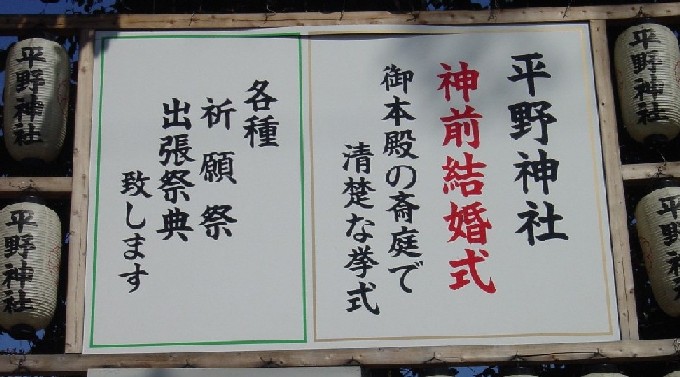 平野神社
神前結婚式
御本殿の斎庭で
清楚な挙式
各種
祈願祭
出張祭典
致します
平野神社
平野神社
平野神社
平野神社